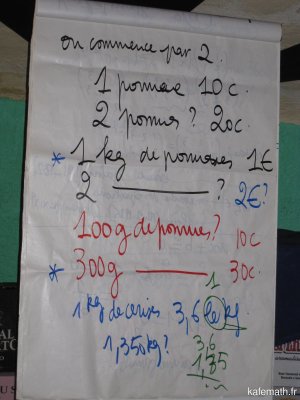 on commence par 2.
1 pomme 10c.
2 pommes? 20c.
* 1 kg de pommes 1€
2 ——— ? 2€?
100g de pommes? 10c
* 300g ——— 30c.
1 kg de cerises 3,6 le kg
1,350kg?
1
3,6
kafemath.fr